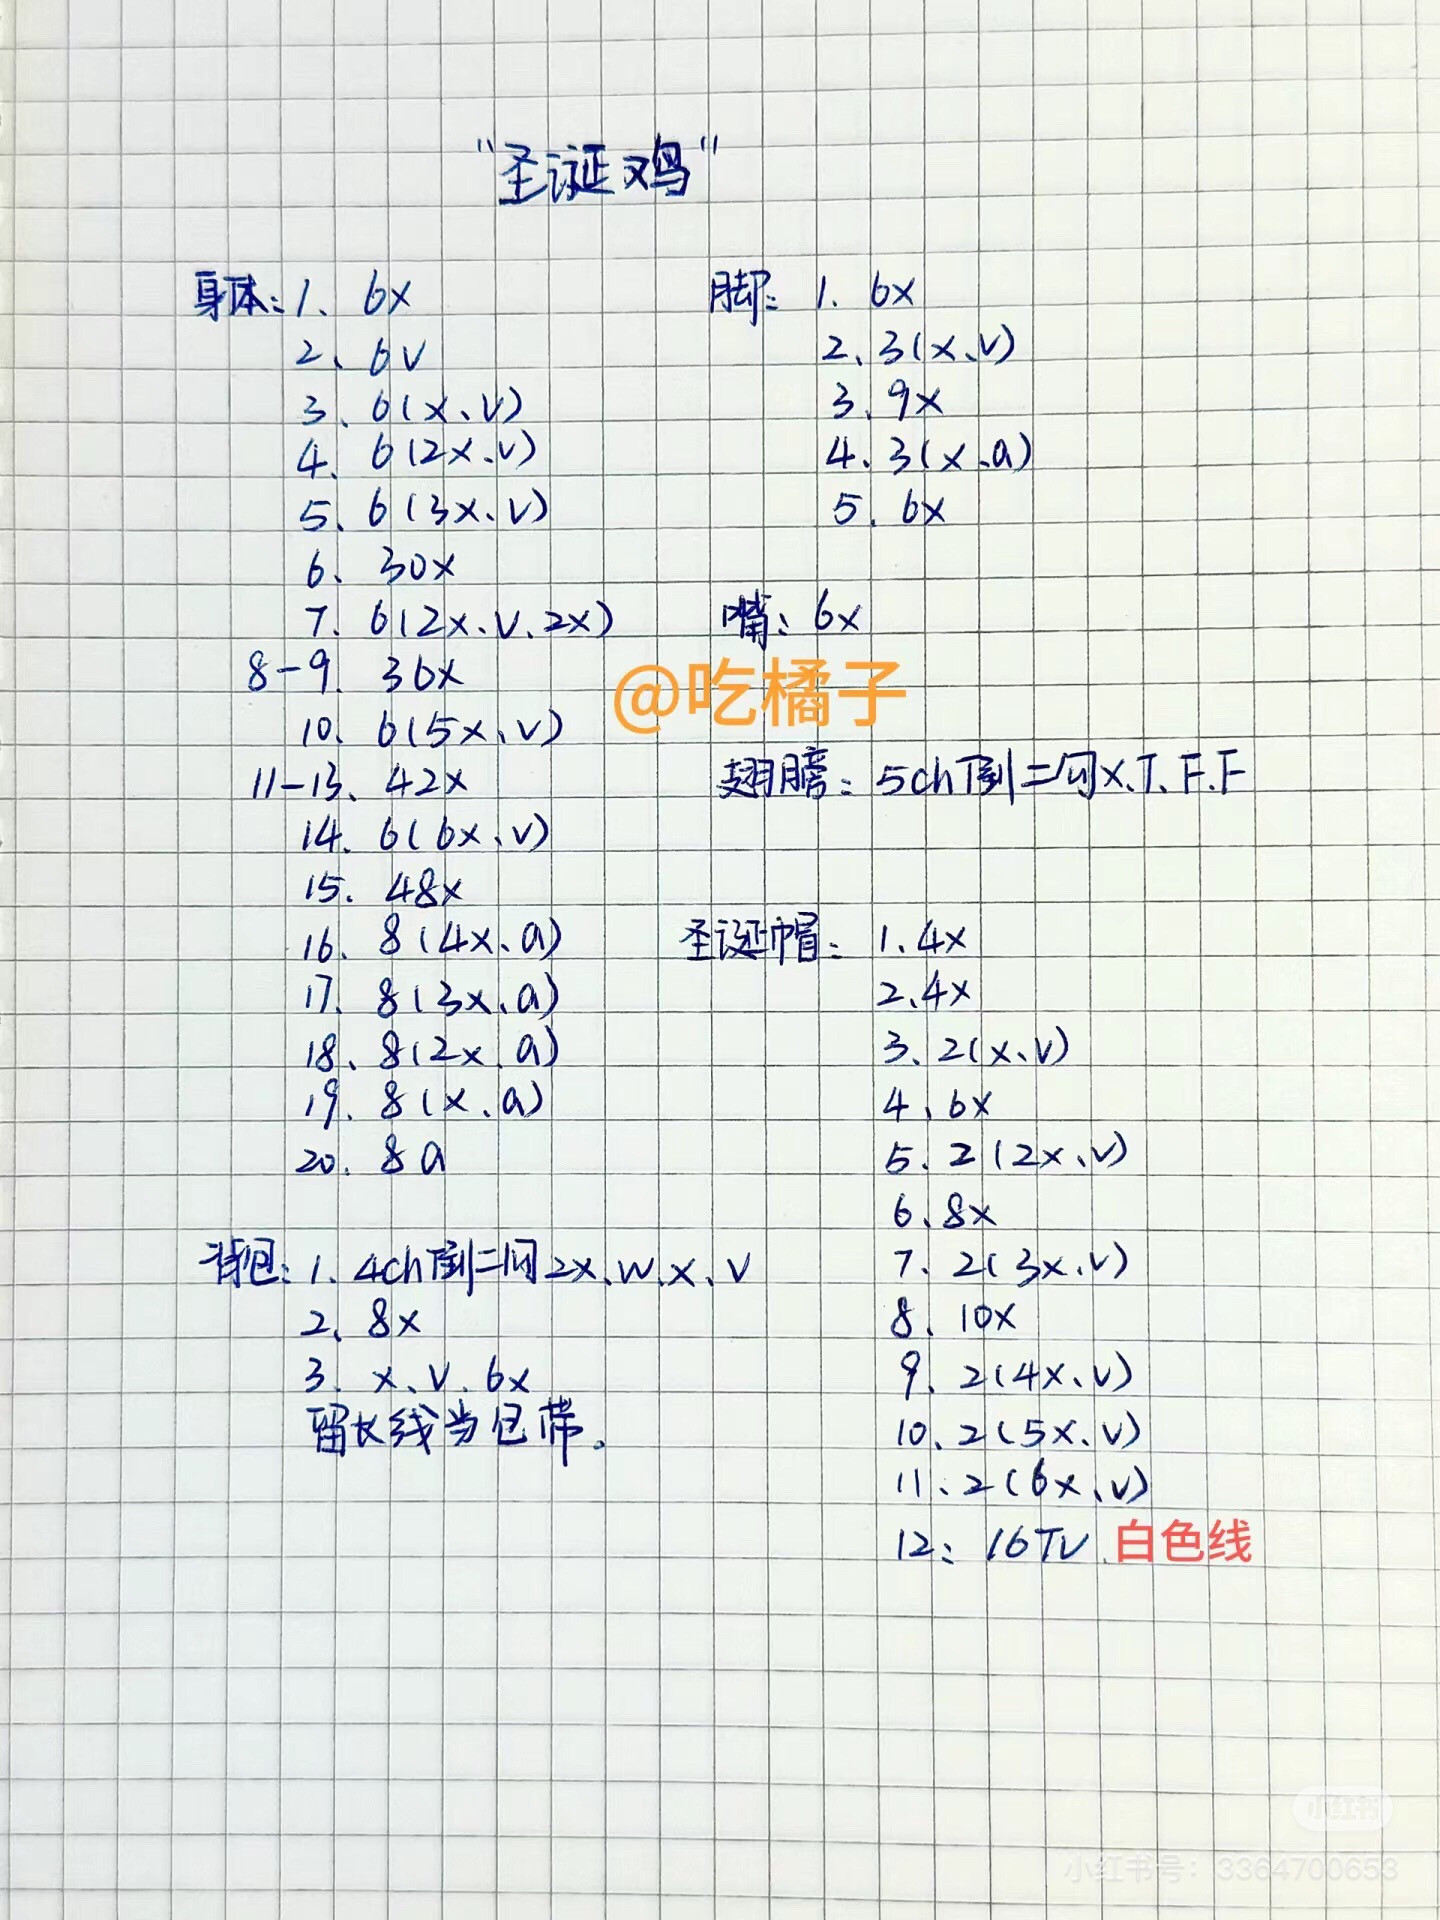 "圣诞鸡"
身体: 1、6x
2、6v
3、6(x、v)
4、6(2x、v)
5、6(3x、v)
6、30x
7、6(2x、v、2x)
8-9、36x
10、6(5x、v)
11-13、42x
14、6(6x、v)
15、48x
16、8(4x、a)
17、8(3x、a)
18、8(2x、a)
19、8(x、a)
20、8a
背包: 1、4ch 倒二间 2x、w、x、v
2、8x
3、x、v、6x
留长线当包带。
脚: 1、6x
2、3(x、v)
3、9x
4、3(x、a)
5、6x
嘴: 6x
@吃橘子
翅膀: 5ch 倒二间 x、T、F、F
圣诞帽: 1、4x
2、4x
3、2(x、v)
4、6x
5、2(2x、v)
6、8x
7、2(3x、v)
8、10x
9、2(4x、v)
10、2(5x、v)
11、2(6x、v)
12: 16TV 白色线
小红书
小红书号: 3364700653